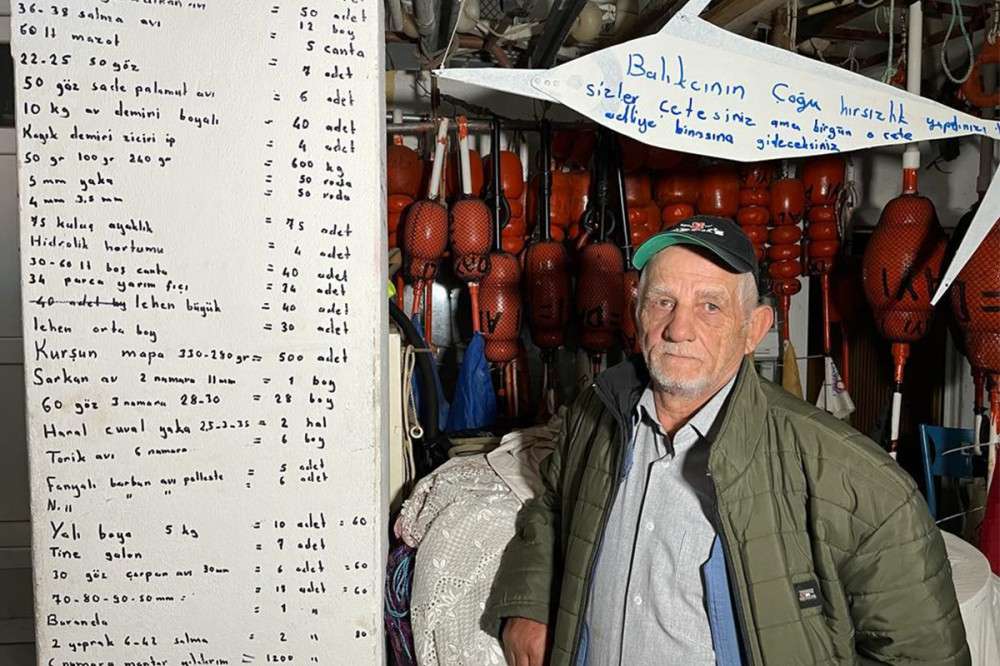 = 50 adet
36-38 salma avı = 12 boy
60 lt mazot = 5 canta
22-25 50 göz = 7 adet
50 göz sade palamut avı = 6 adet
10 kg av demiri boyalı = 40 adet
Kayık demiri ziciri ip = 4 adet
50 gr 100 gr 240 gr = 600 kg
5 mm yaka = 50 roda
4 mm 3,5 mm = 50 roda
75 kulaç ayaklık = 75 adet
Hidrolik hortumu = 4 adet
30-60 lt boş canta = 40 adet
34 parca yarım fıçı = 34 adet
40 adet lehen büyük = 40 adet
lehen orta boy = 30 adet
Kurşun mapa 330-280gr = 500 adet
Sarkan av 2 numara 11mm = 1 boy
60 göz 3 numara 28-30 = 28 boy
Haral cuval yaka 2,5-3-35 = 2 hal
Torik avı 6 numara = 6 boy
Fanyalı barbun avı palleste = 5 adet
N. 11 " " = 6 adet
Yalı boya 5 kg = 10 adet = 60
Tine galon = 7 adet
30 göz çarpan avı 30mm = 6 adet = 60
70-80-90-50 mm = = 11 adet = 60
Buranda = 1 "
2 yaprak 6-42 salma = 2 " 80
6 numara mantar yıldırım = 1200 "
Balıkcının Çoğu hırsızlık yaptınız
sizler çetesiniz ama birgün o cete
adliye binasına gideceksiniz
DAYI